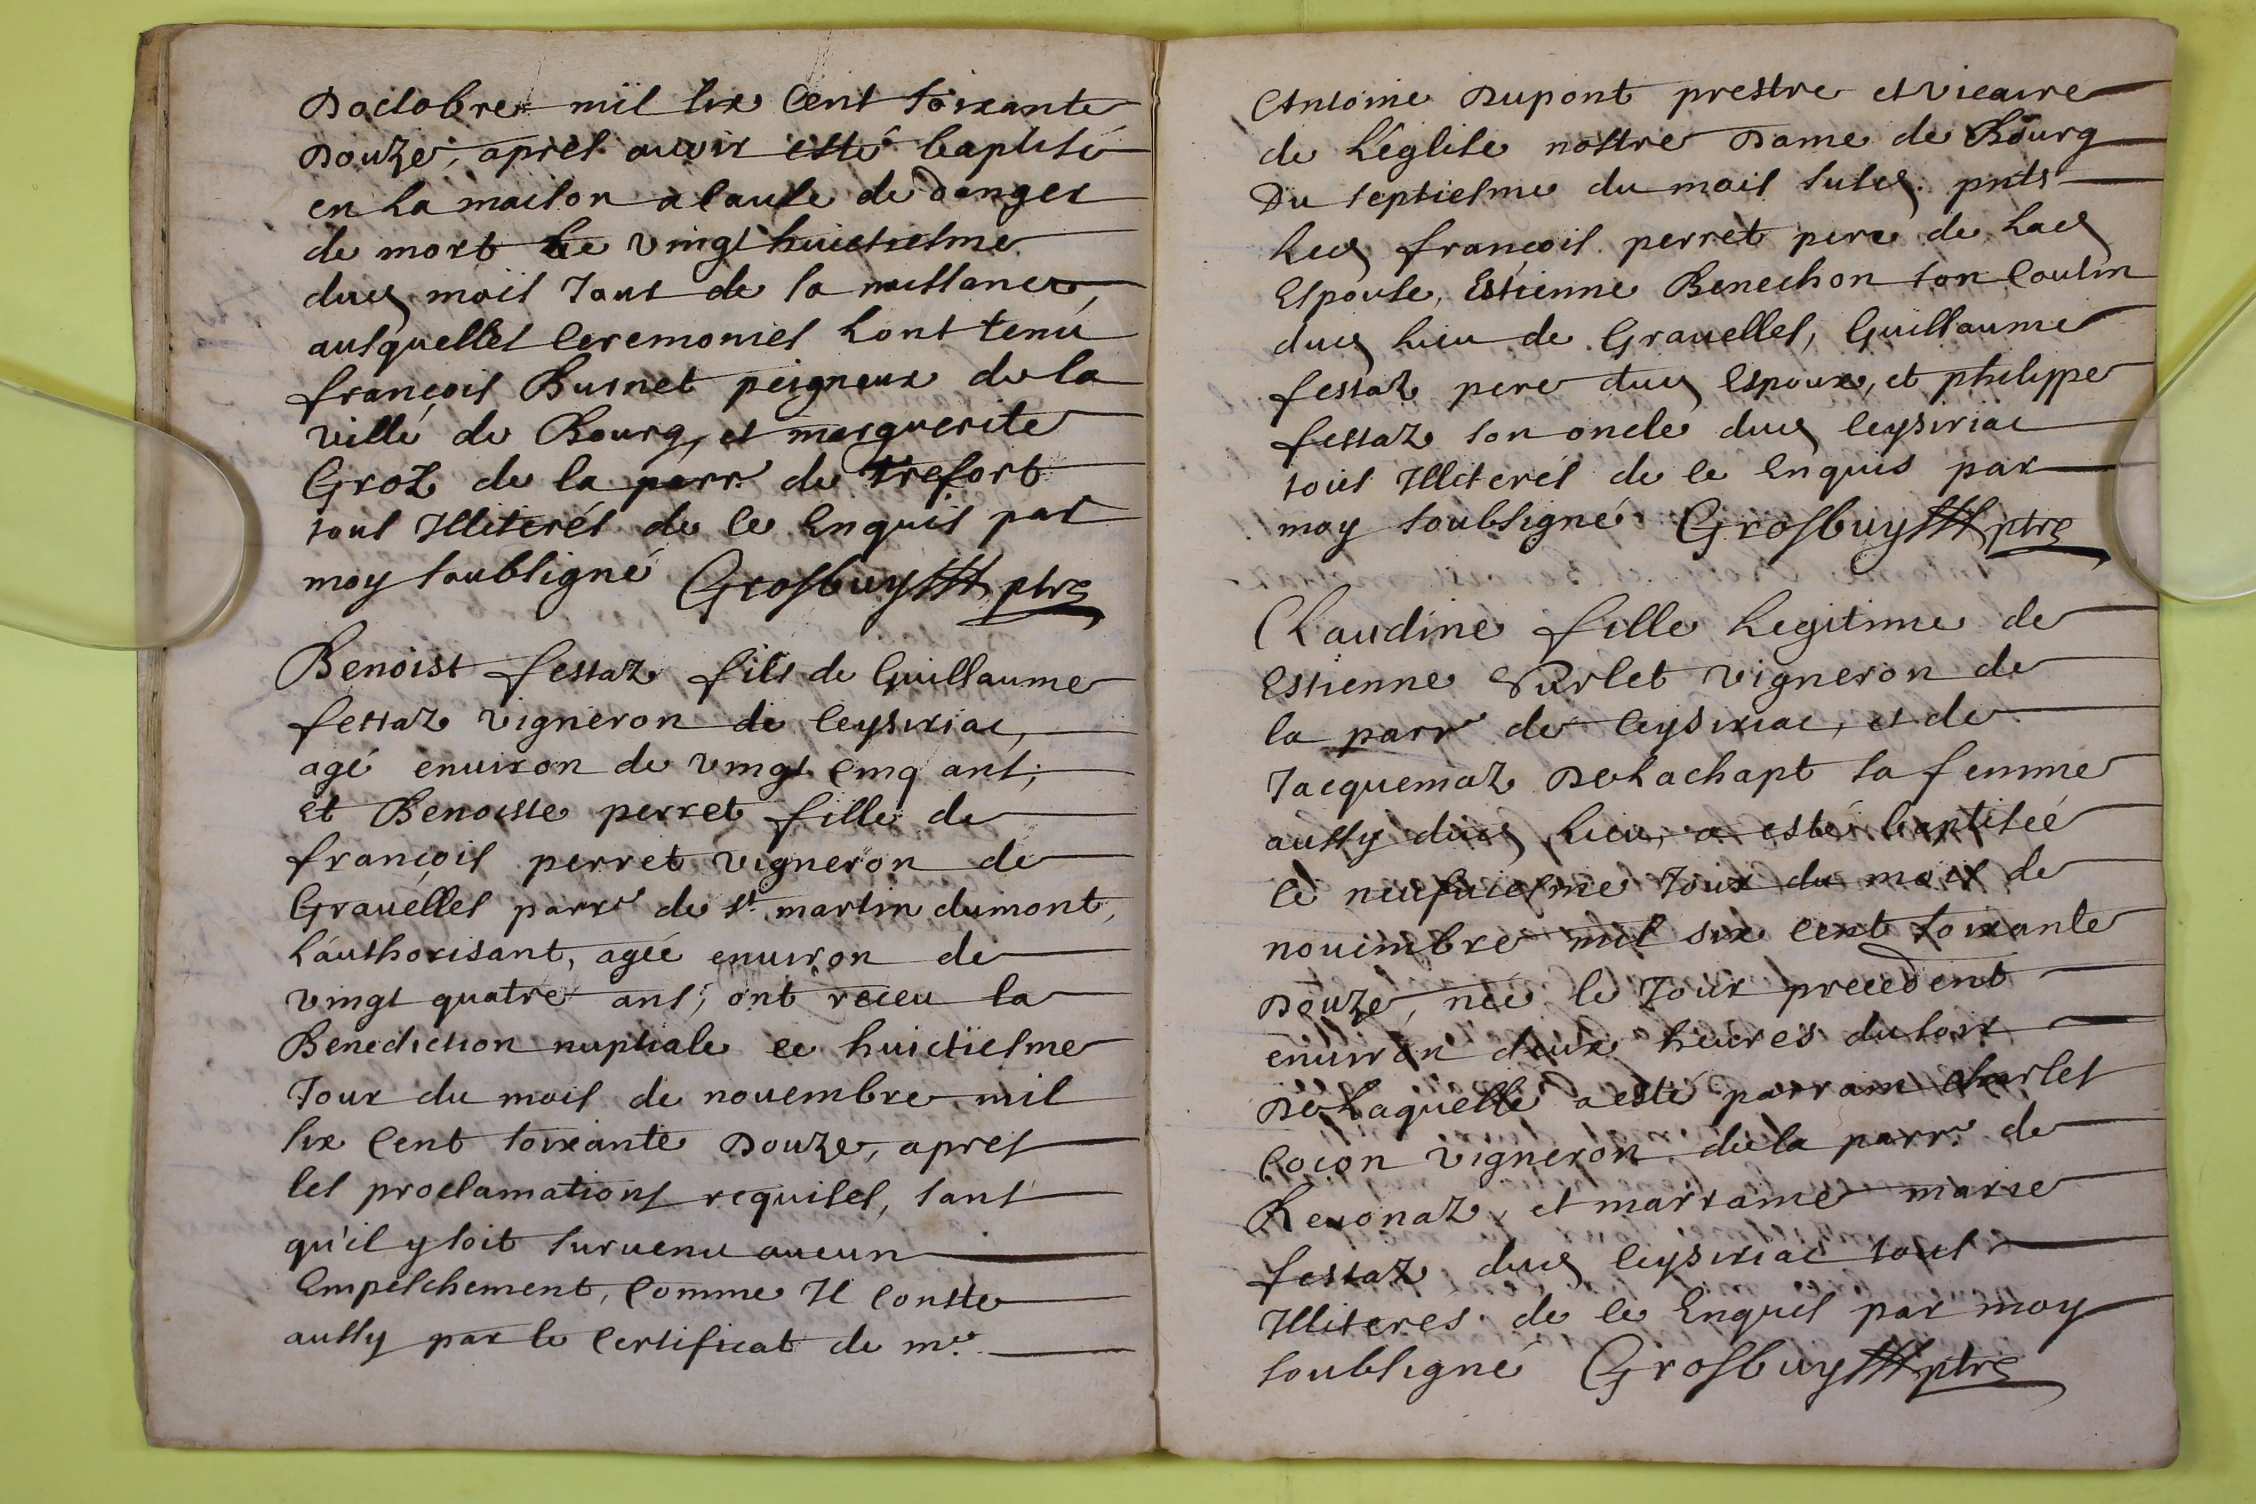 Doctobre mil six Cent soixante
Douze, apres avoir esté baptisé
en la maison a cause de danger
de mort le vingt huictiesme
dud. mois Jour de sa naissance,
ausquelles Ceremonies Lont tenu
françois Burnet peigneur de la
ville de Bourg, et marguerite
Groz de la parr. de Trefort
tous Illiterés de ce Enquis par
moy soubsigné Grosbuy ptre
Benoist festaz fils de Guillaume
festaz vigneron de Ceysiriac,
agé environ de vingt Cinq ans;
et Benoiste perret fille de
françois perret vigneron de
Gravelles parr. de st. martin dumont,
L'authorisant, agée environ de
vingt quatre ans; ont receu la
Benediction nuptiale ce huictiesme
Jour du mois de novembre mil
six Cent soixante Douze, apres
les proclamations requises, sans
qu'il y soit survenu aucun
Empeschement, Comme Il Conste
aussy par le Certificat de mre.
Antoine Dupont prestre et vicaire
de L'église nostre Dame de Bourg
Du septiesme du mois susd. pnts
Led. françois perret pere de Lad.
Espouse, Estienne Benechon son Cousin
dud. Lieu de Gravelles, Guillaume
festaz pere dud. Espoux, et philippe
festaz son oncle dud. Ceysiriac
tous Illiterés de ce Enquis par
moy soubsigné Grosbuy ptre
Claudine fille Legitime de
Estienne Purlet vigneron de
la parr. de Ceysiriac, et de
Jacquemaz DeLachapt sa femme
aussy dud. Lieu, a esté baptisée
le neufviesme Jour du mois de
novembre mil six cent soixante
Douze, née le Jour precedent
environ deux heures du soir
De Laquelle a esté parrain charles
Cocon vigneron de la parr. de
Revonaz, et marrame marie
festaz dud. Ceysiriac tous
Illiteres de ce Enquis par moy
soubsigné Grosbuy ptre